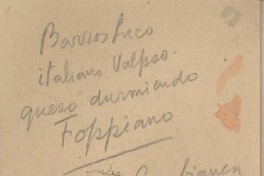 Barros Luco
italiano Valpso.
queso durmiendo
Foppiano